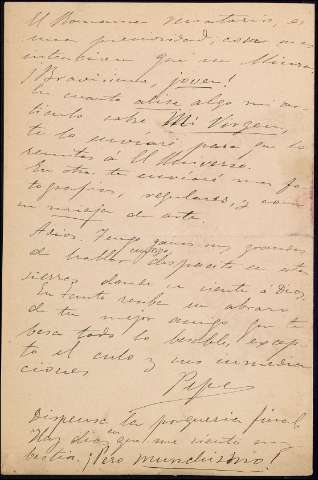 El Romance miratorio, es
una preciosidad, con mas
intención que un Miura.
¡Bravisimo, joven!
En cuanto alise algo mi ar-
tículo sobre Mi Virgen,
te lo enviaré para que lo
remitas á El Universo.
En otra te enviaré mas fo-
tografías, regulares, y con
un miaja de arte.
Adios. Tengo ganas muy grandes
de hablar contigo despacito en esta
sierra donde se siente á Dios.
En tanto recibe un abrazo
de tu mejor amigo que te
besa todo lo besable, excep-
to el culo y sus inmedia-
ciones
Pepe
Dispensa la porqueria final
Hay dias en que me siento muy
bestia. ¡Pero munchismo!